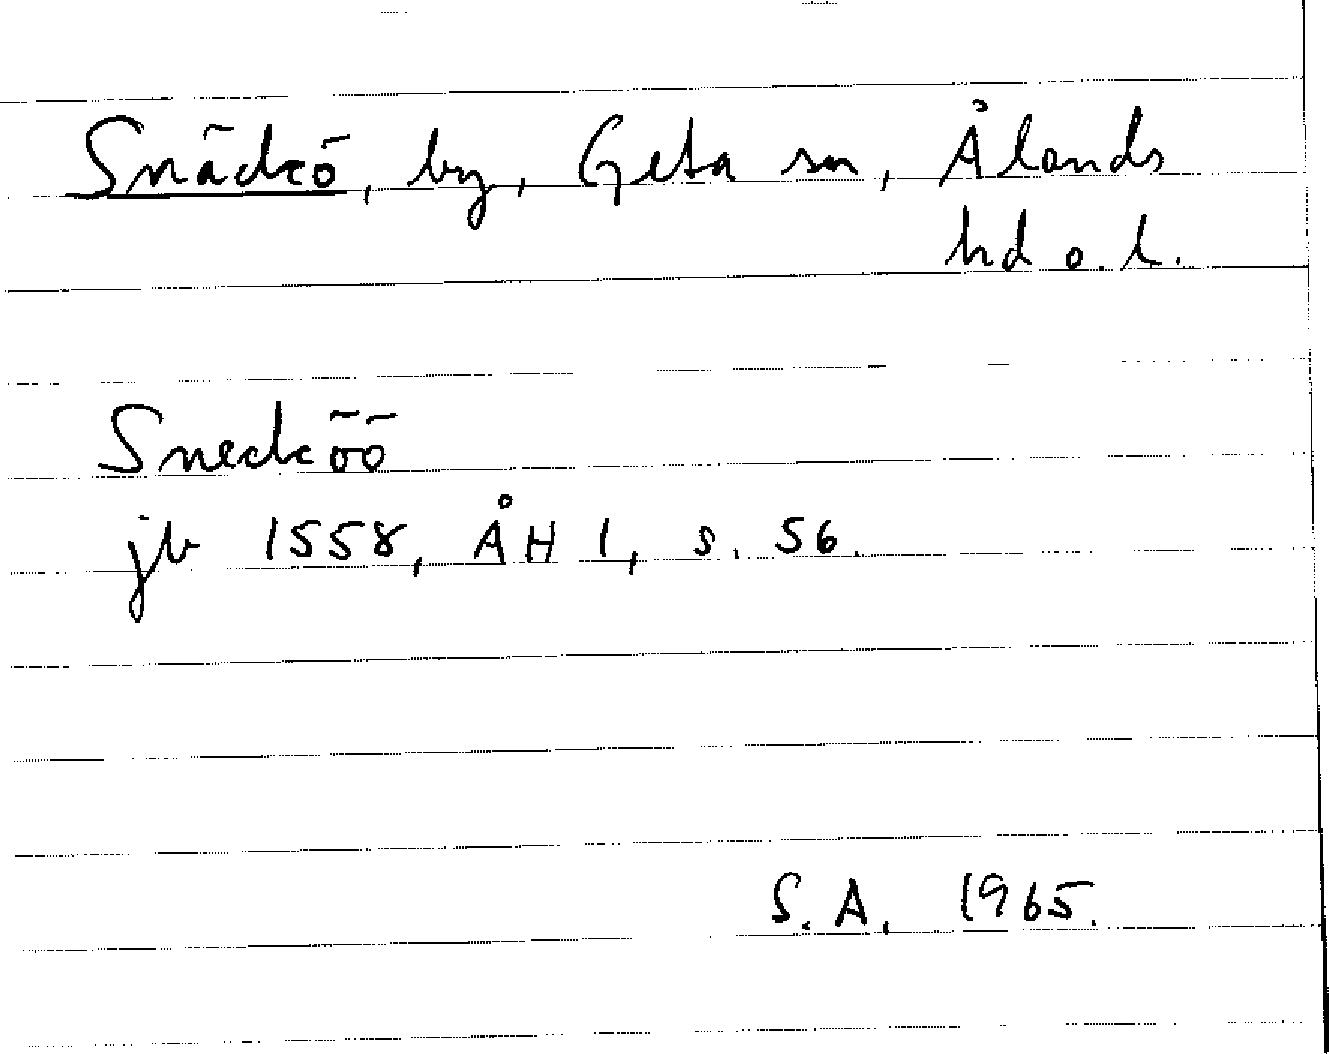 Snäckö, by, Geta sn, Ålands
hd o. l.
Snecköö
jb 1558, ÅH 1, s. 56.
S. A. 1965.